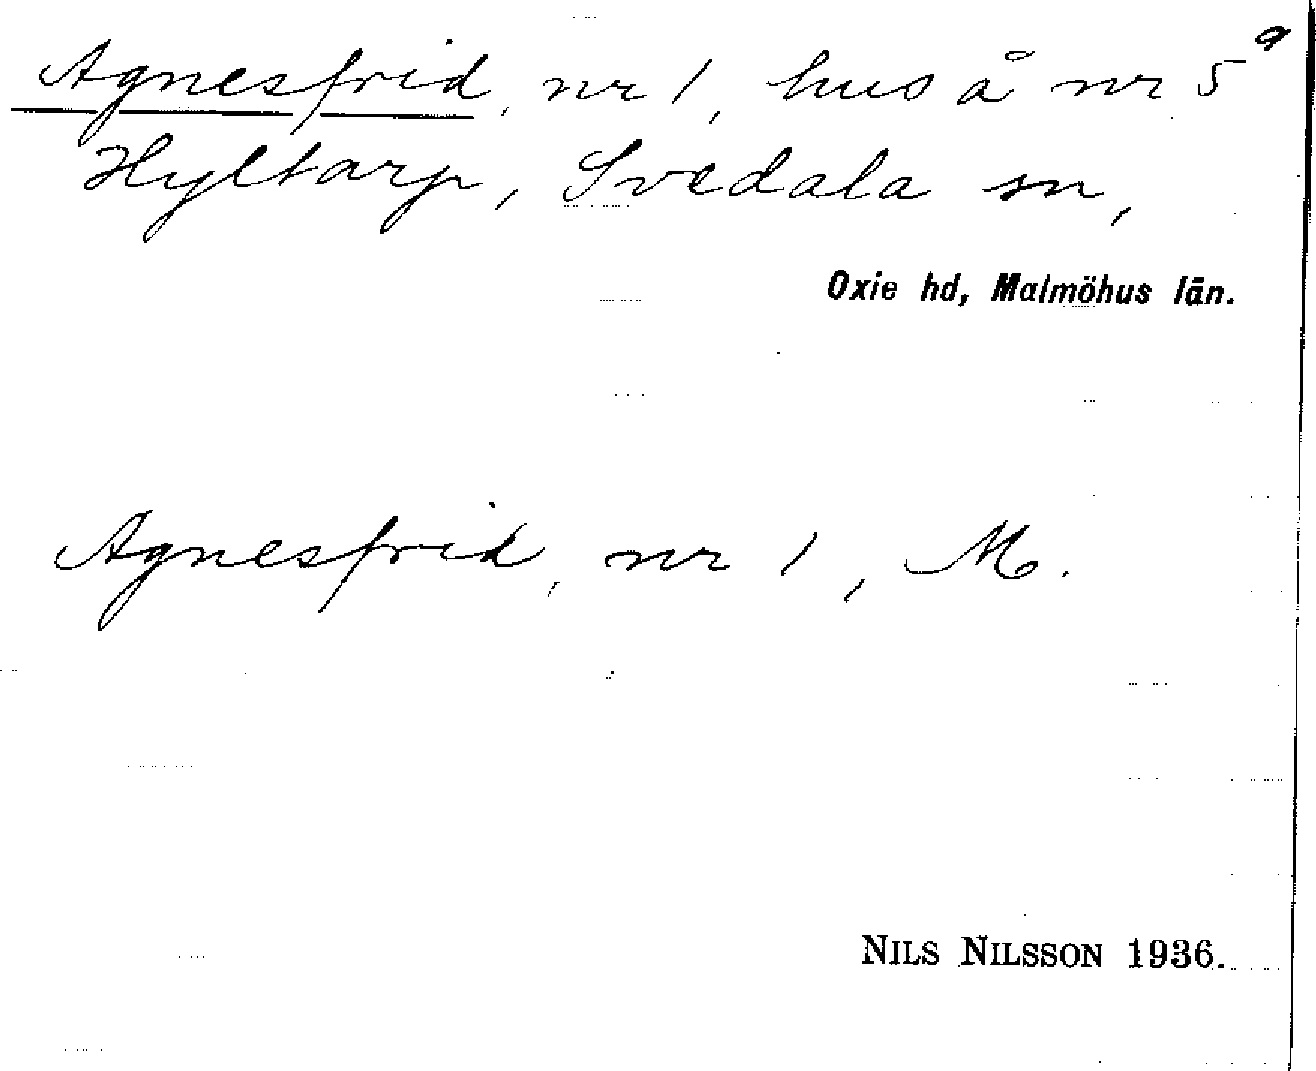 Agnesfrid, nr 1, hus å nr 5ᵃ
Hyltarp, Svedala sn,
Oxie hd, Malmöhus län.
Agnesfrid, nr 1, M.
NILS NILSSON 1936.